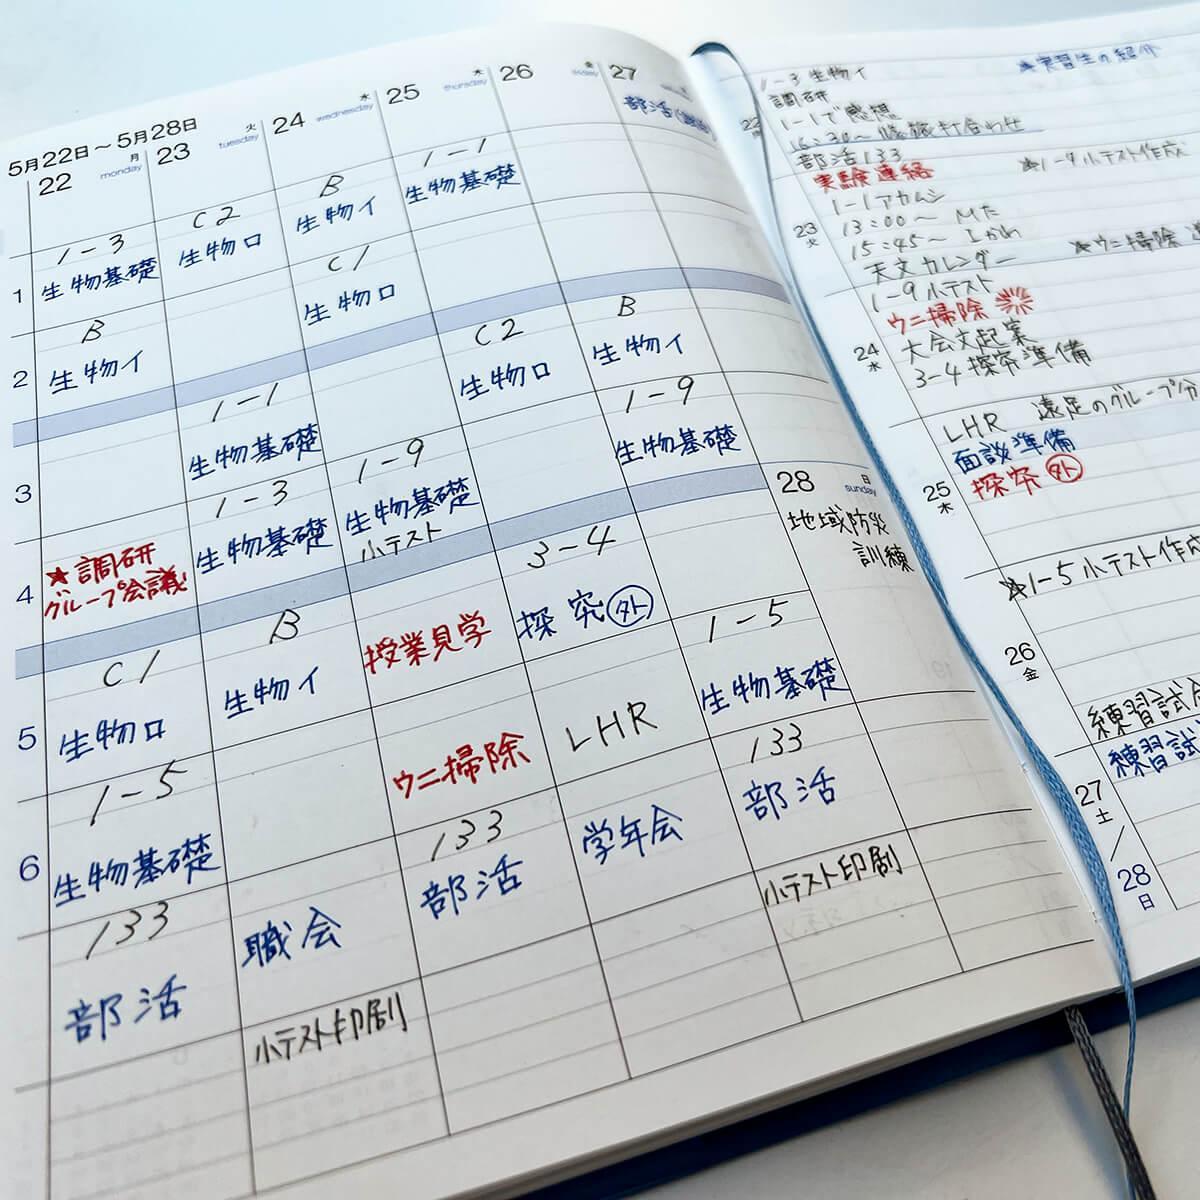 5月22日～5月28日
22 月 monday
23 火 tuesday
24 水 wednesday
25 木 thursday
26 金 friday
27
部活
1
1-3
生物基礎
C2
生物ロ
B
生物イ
1-1
生物基礎
2
B
生物イ
C1
生物ロ
C2
生物ロ
B
生物イ
3
1-1
生物基礎
1-9
生物基礎
小テスト
1-9
生物基礎
4
★調研
グループ会議
1-3
生物基礎
授業見学
3-4
探究(外)
28 日 sunday
地域防災
訓練
5
C1
生物ロ
B
生物イ
ウニ掃除
LHR
1-5
生物基礎
6
1-5
生物基礎
133
部活
職会
小テスト印刷
133
部活
学年会
133
部活
小テスト印刷
1-3 生物イ
★実習生の紹介
調研
1-1で感想
16:30～修旅打合わせ
部活133
実験連絡
★1-9小テスト作成
23 火
1-1アカムシ
13:00～
15:45～
天文カレンダー
★ウニ掃除
24 水
1-9小テスト
ウニ掃除
大会文起案
3-4探究準備
25 木
LHR 遠足のグループ分
面談準備
探究(外)
26 金
★1-5小テスト作成
練習試合
27 土
練習試
28 日